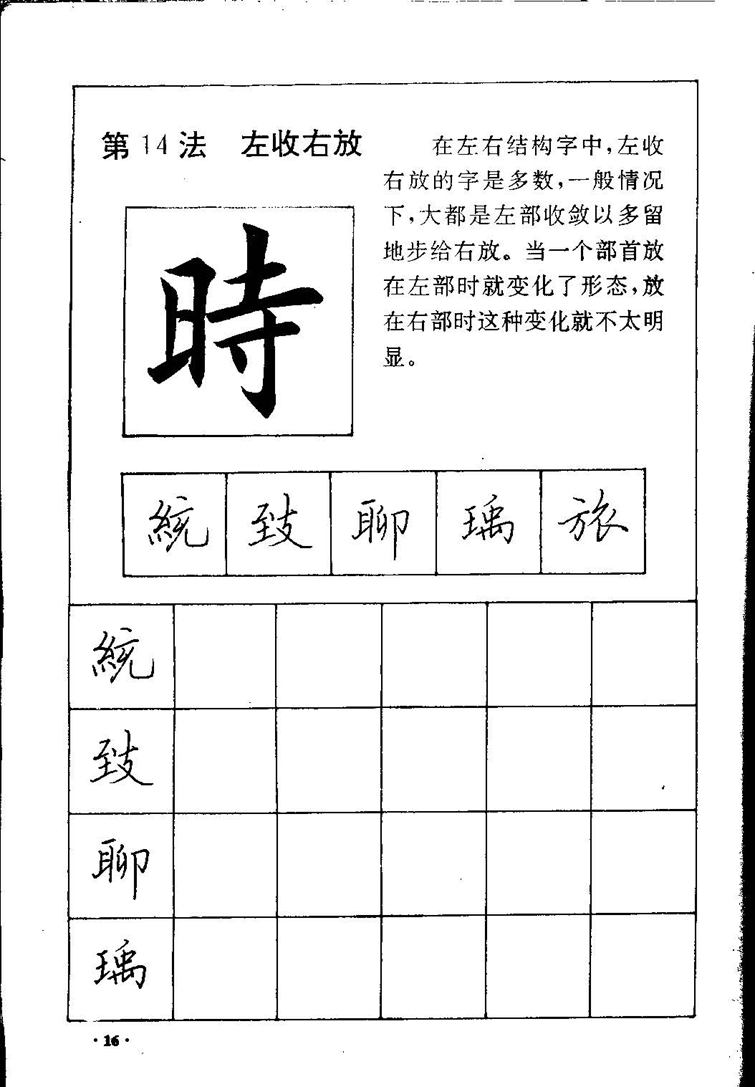 第14法 左收右放
在左右结构字中,左收
右放的字是多数,一般情况
下,大都是左部收敛以多留
地步给右放。当一个部首放
在左部时就变化了形态,放
在右部时这种变化就不太明
显。
時
統 致 聊 瑀 旅
統
致
聊
瑀
·16·